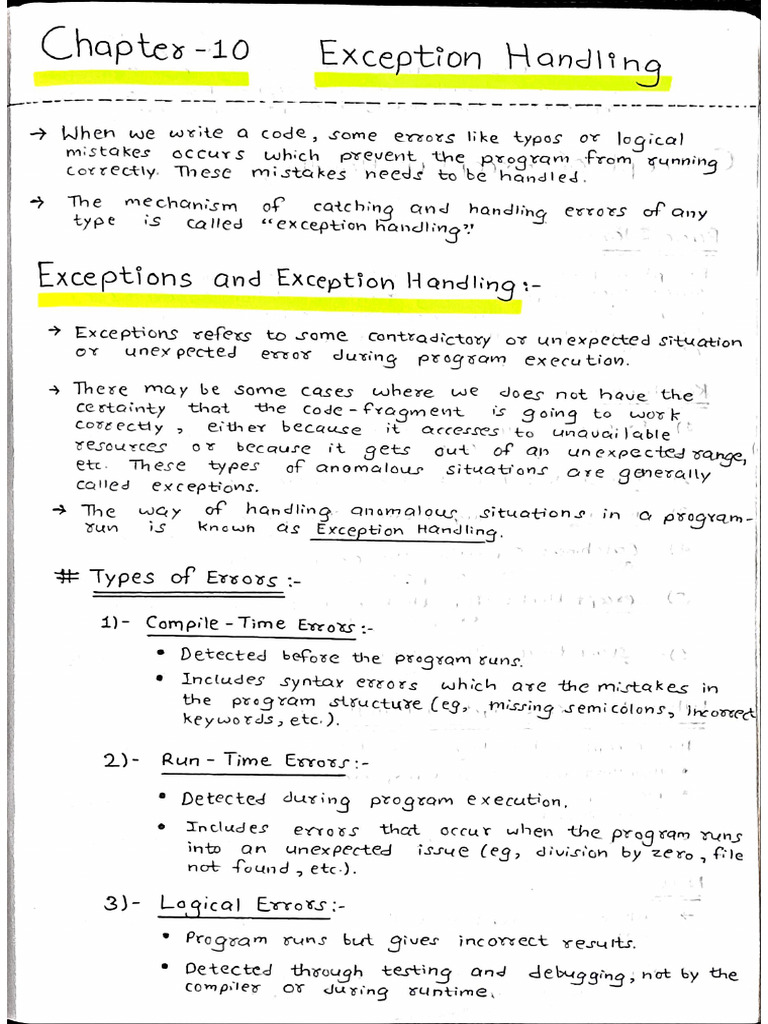 Chapter-10 Exception Handling
→ When we write a code, some errors like typos or logical
mistakes occurs which prevent the program from running
correctly. These mistakes needs to be handled.
→ The mechanism of catching and handling errors of any
type is called "exception handling".
Exceptions and Exception Handling:-
→ Exceptions refers to some contradictory or unexpected situation
or unexpected error during program execution.
→ There may be some cases where we does not have the
certainty that the code-fragment is going to work
correctly, either because it accesses to unavailable
resources or because it gets out of an unexpected range,
etc. These types of anomalous situations are generally
called exceptions.
→ The way of handling anomalous situations in a program-
run is known as Exception Handling.
# Types of Errors:-
1)- Compile-Time Errors:-
• Detected before the program runs.
• Includes syntax errors which are the mistakes in
the program structure (eg, missing semicolons, incorrect
keywords, etc.).
2)- Run-Time Errors:-
• Detected during program execution.
• Includes errors that occur when the program runs
into an unexpected issue (eg, division by zero, file
not found, etc.).
3)- Logical Errors:-
• Program runs but gives incorrect results.
• Detected through testing and debugging, not by the
compiler or during runtime.